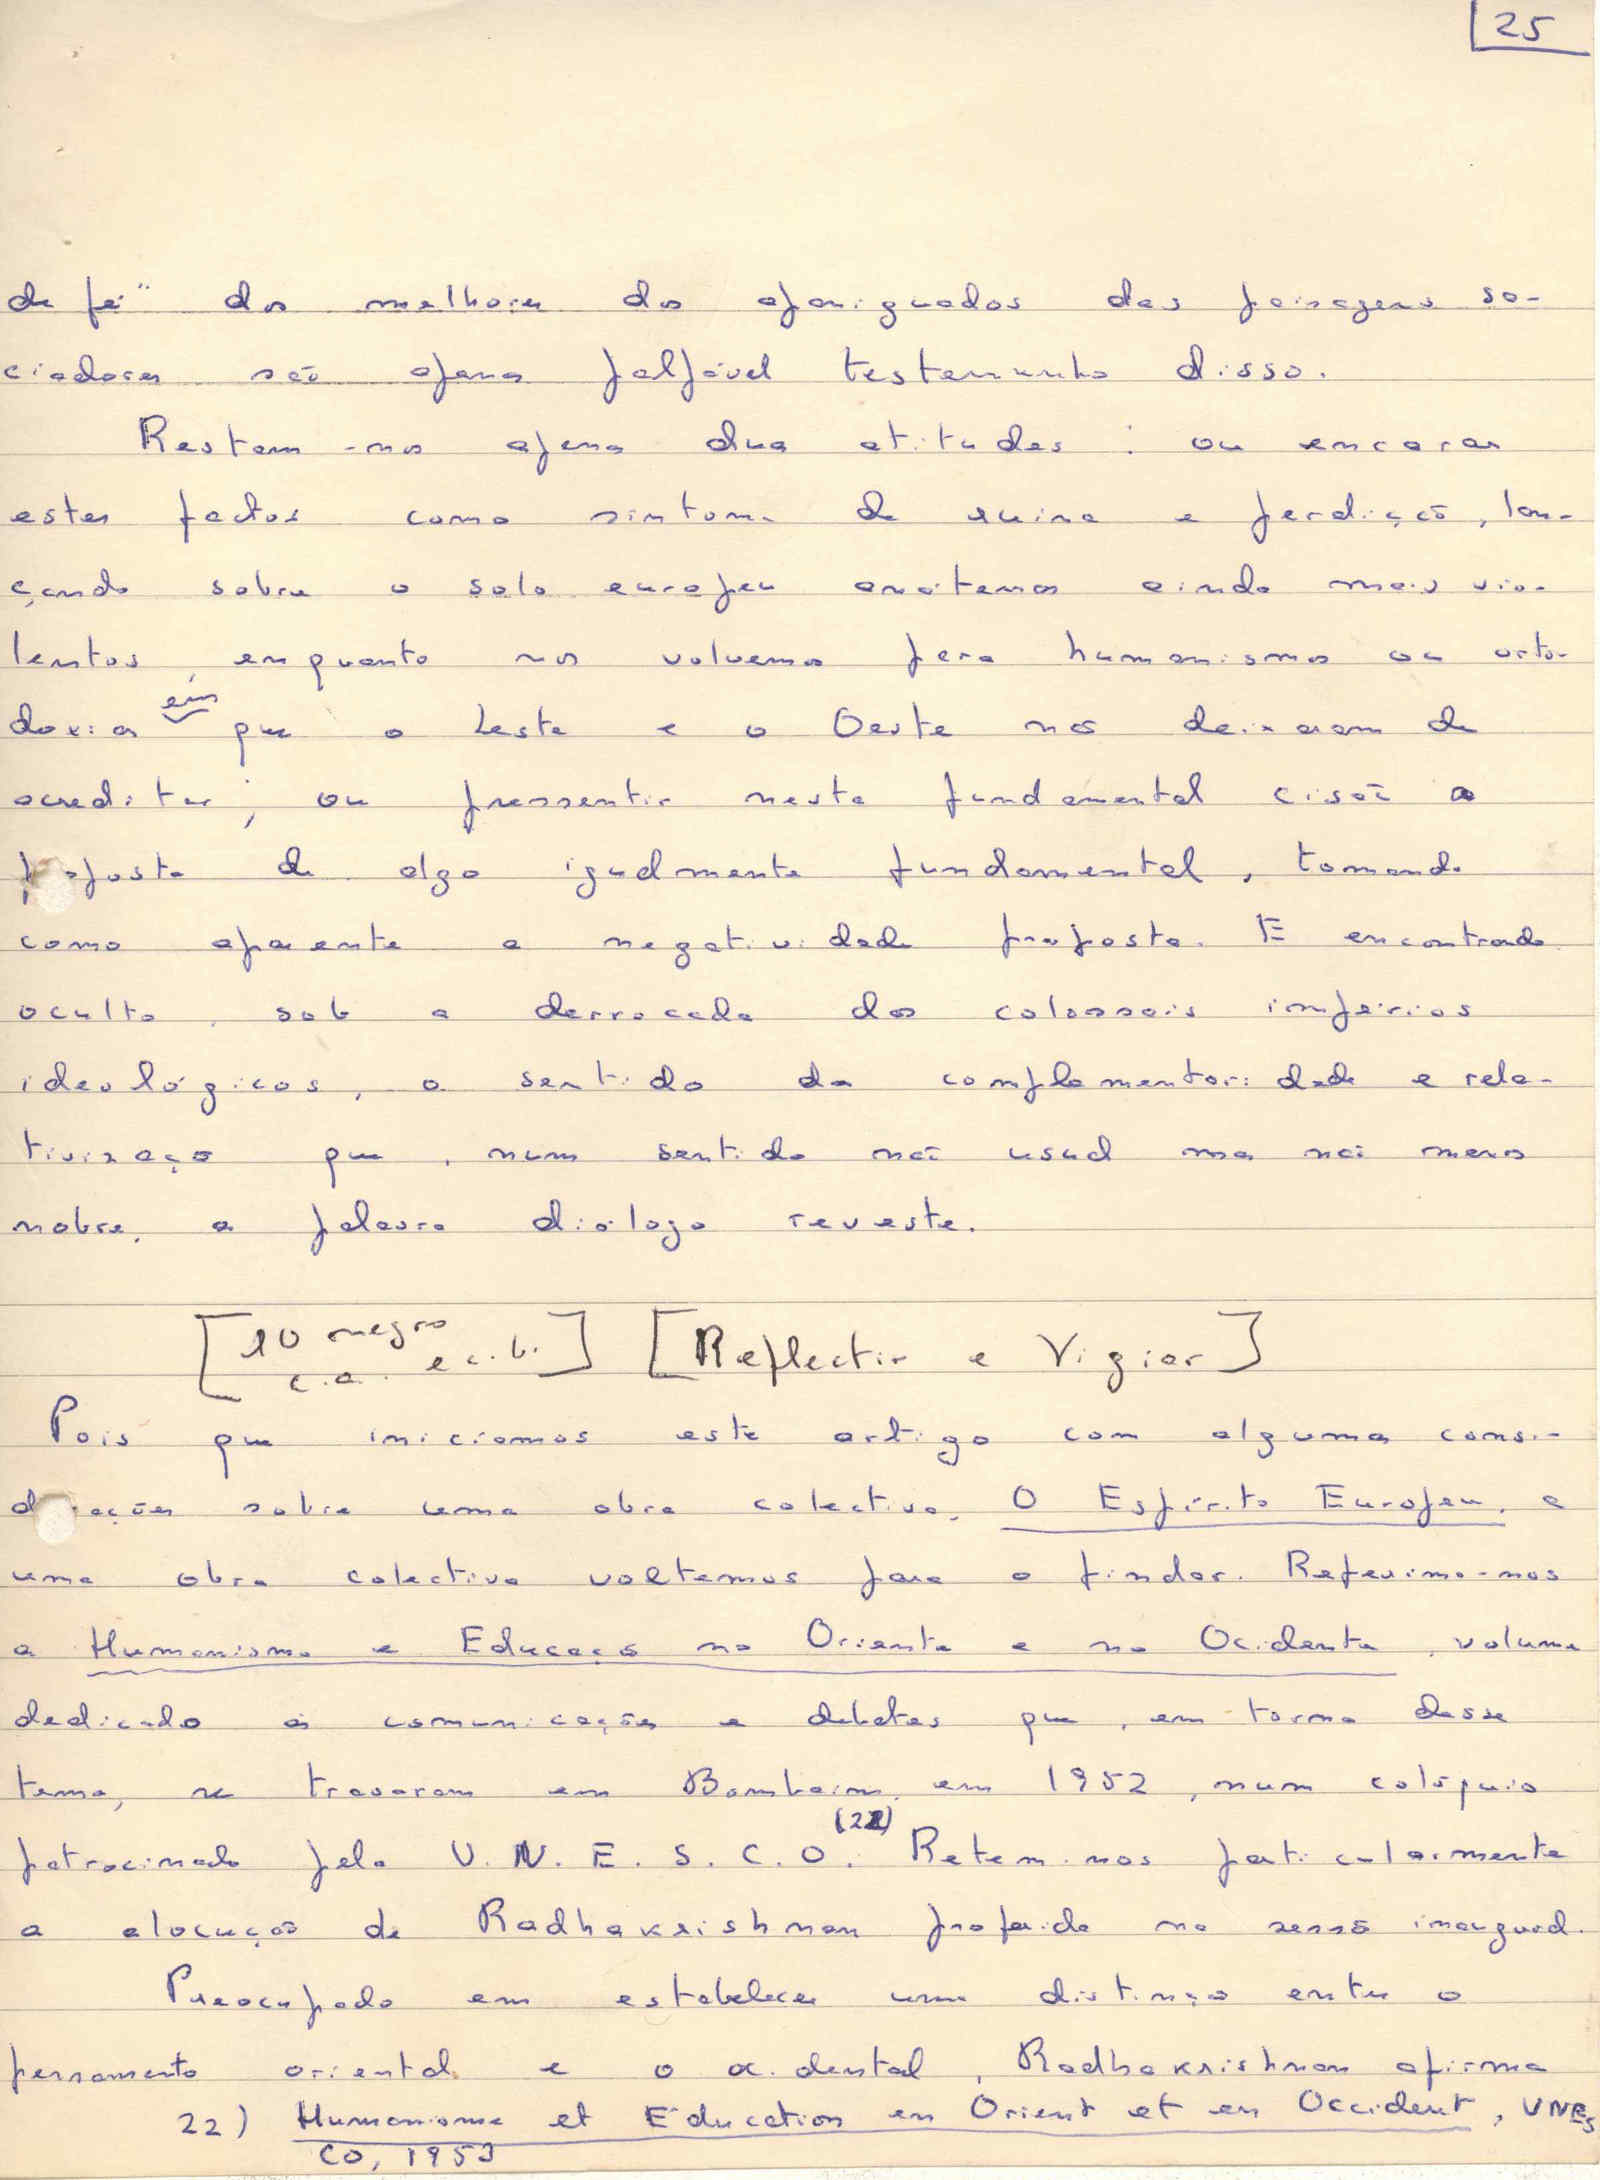 25
de fé" dos melhores dos apaniguados das paisagens so-
ciadoras são apenas palpável testemunho disso.
Restam-nos apenas duas atitudes: ou encarar
estes factos como sintoma de ruina e perdição, lan-
çando sobre o solo europeu anátemas ainda mais vio-
lentos, enquanto nos volvemos para humanismos ou orto-
doxias em que o Leste e o Oeste nos deixaram de
acreditar; ou pressentir nesta fundamental cisão a
proposta de algo igualmente fundamental, tomando
como aparente a negatividade proposta. E encontrando
oculto, sob a derrocada dos colossais impérios
ideológicos, o sentido da complementaridade e rela-
tivização que, num sentido não usual mas não menos
nobre, a palavra diálogo reveste.
[10 negro
c.a. e c.b.] [Reflectir e Vigiar]
Pois que iniciamos este artigo com algumas consi-
derações sobre uma obra colectiva, O Espírito Europeu, a
uma obra colectiva voltemos para o findar. Referimo-nos
a Humanismo e Educação no Oriente e no Ocidente, volume
dedicado às comunicações e debates que, em torno desse
tema, se travaram em Bombaim, em 1952, num colóquio
patrocinado pela U.N.E.S.C.O. (22) Retem-nos particularmente
a alocução de Radhakrishnan proferida na sessão inaugural.
Preocupado em estabelecer uma distinção entre o
pensamento oriental e o ocidental, Radhakrishnan afirma
22) Humanisme et Éducation en Orient et en Occident, UNES
CO, 1953